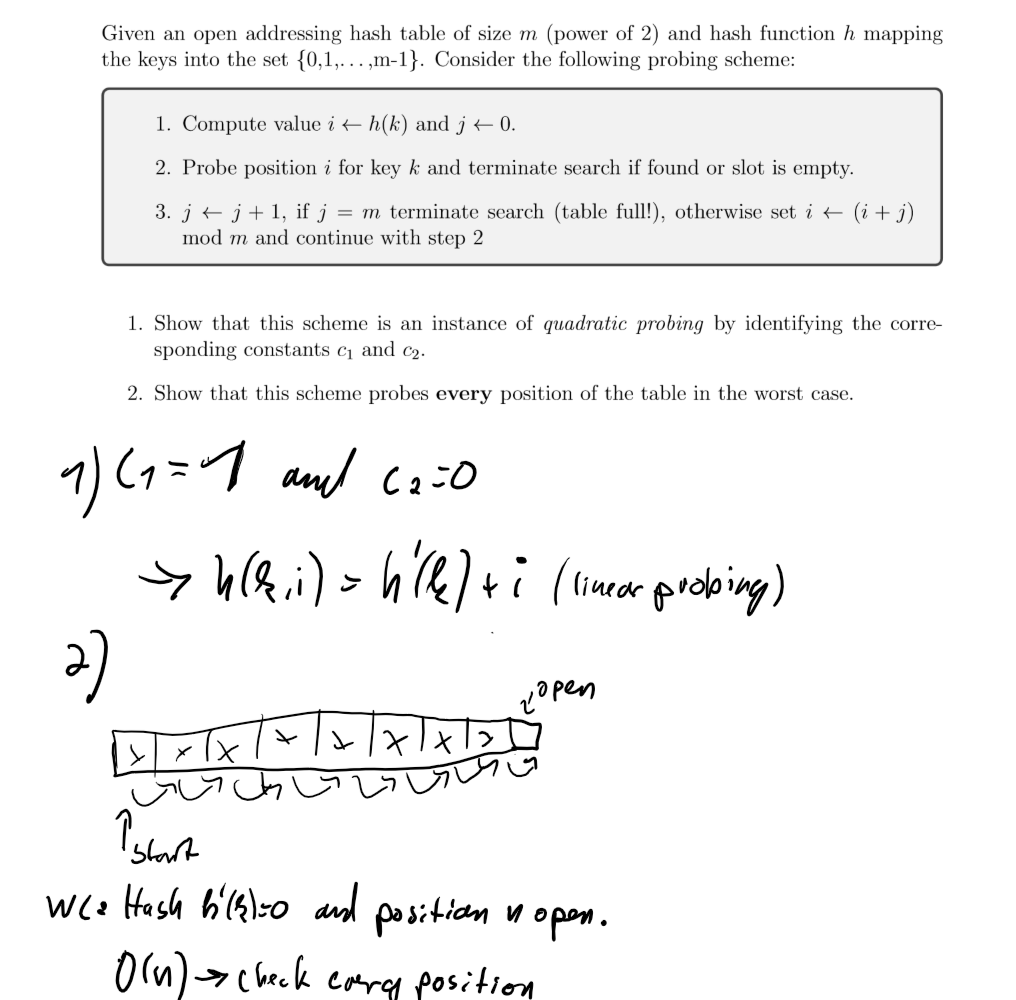 Given an open addressing hash table of size m (power of 2) and hash function h mapping
the keys into the set {0,1,...,m-1}. Consider the following probing scheme:
1. Compute value i ← h(k) and j ← 0.
2. Probe position i for key k and terminate search if found or slot is empty.
3. j ← j + 1, if j = m terminate search (table full!), otherwise set i ← (i + j)
mod m and continue with step 2
1. Show that this scheme is an instance of quadratic probing by identifying the corre-
sponding constants c₁ and c₂.
2. Show that this scheme probes every position of the table in the worst case.
1) C₁ = 1 and C₂ = 0
→ h(k,i) = h'(k) + i (linear probing)
2)
open
x x x x x x x
start
WC: Hash h'(k)=0 and position n open.
O(n) → check position